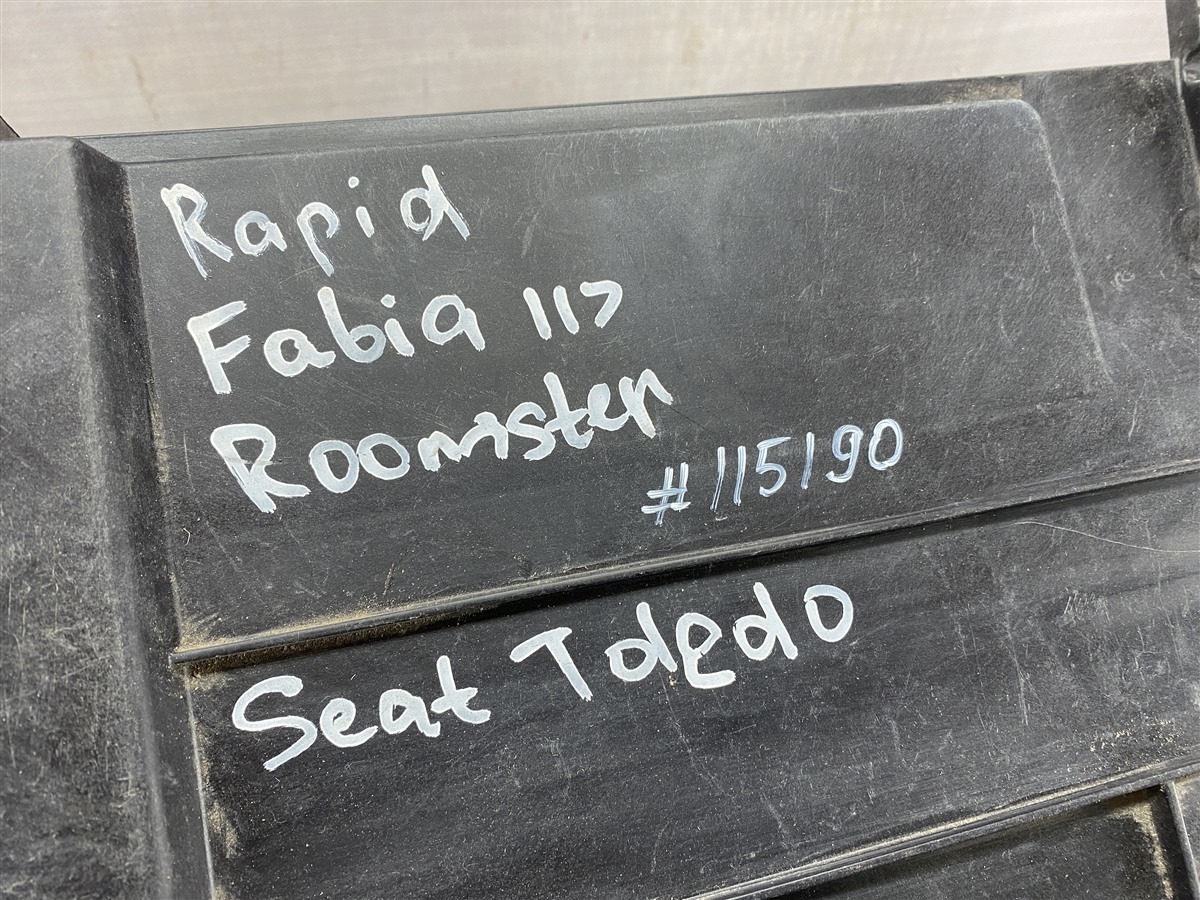 Rapid
Fabia 11>
Roomster
#115190
Seat Toledo